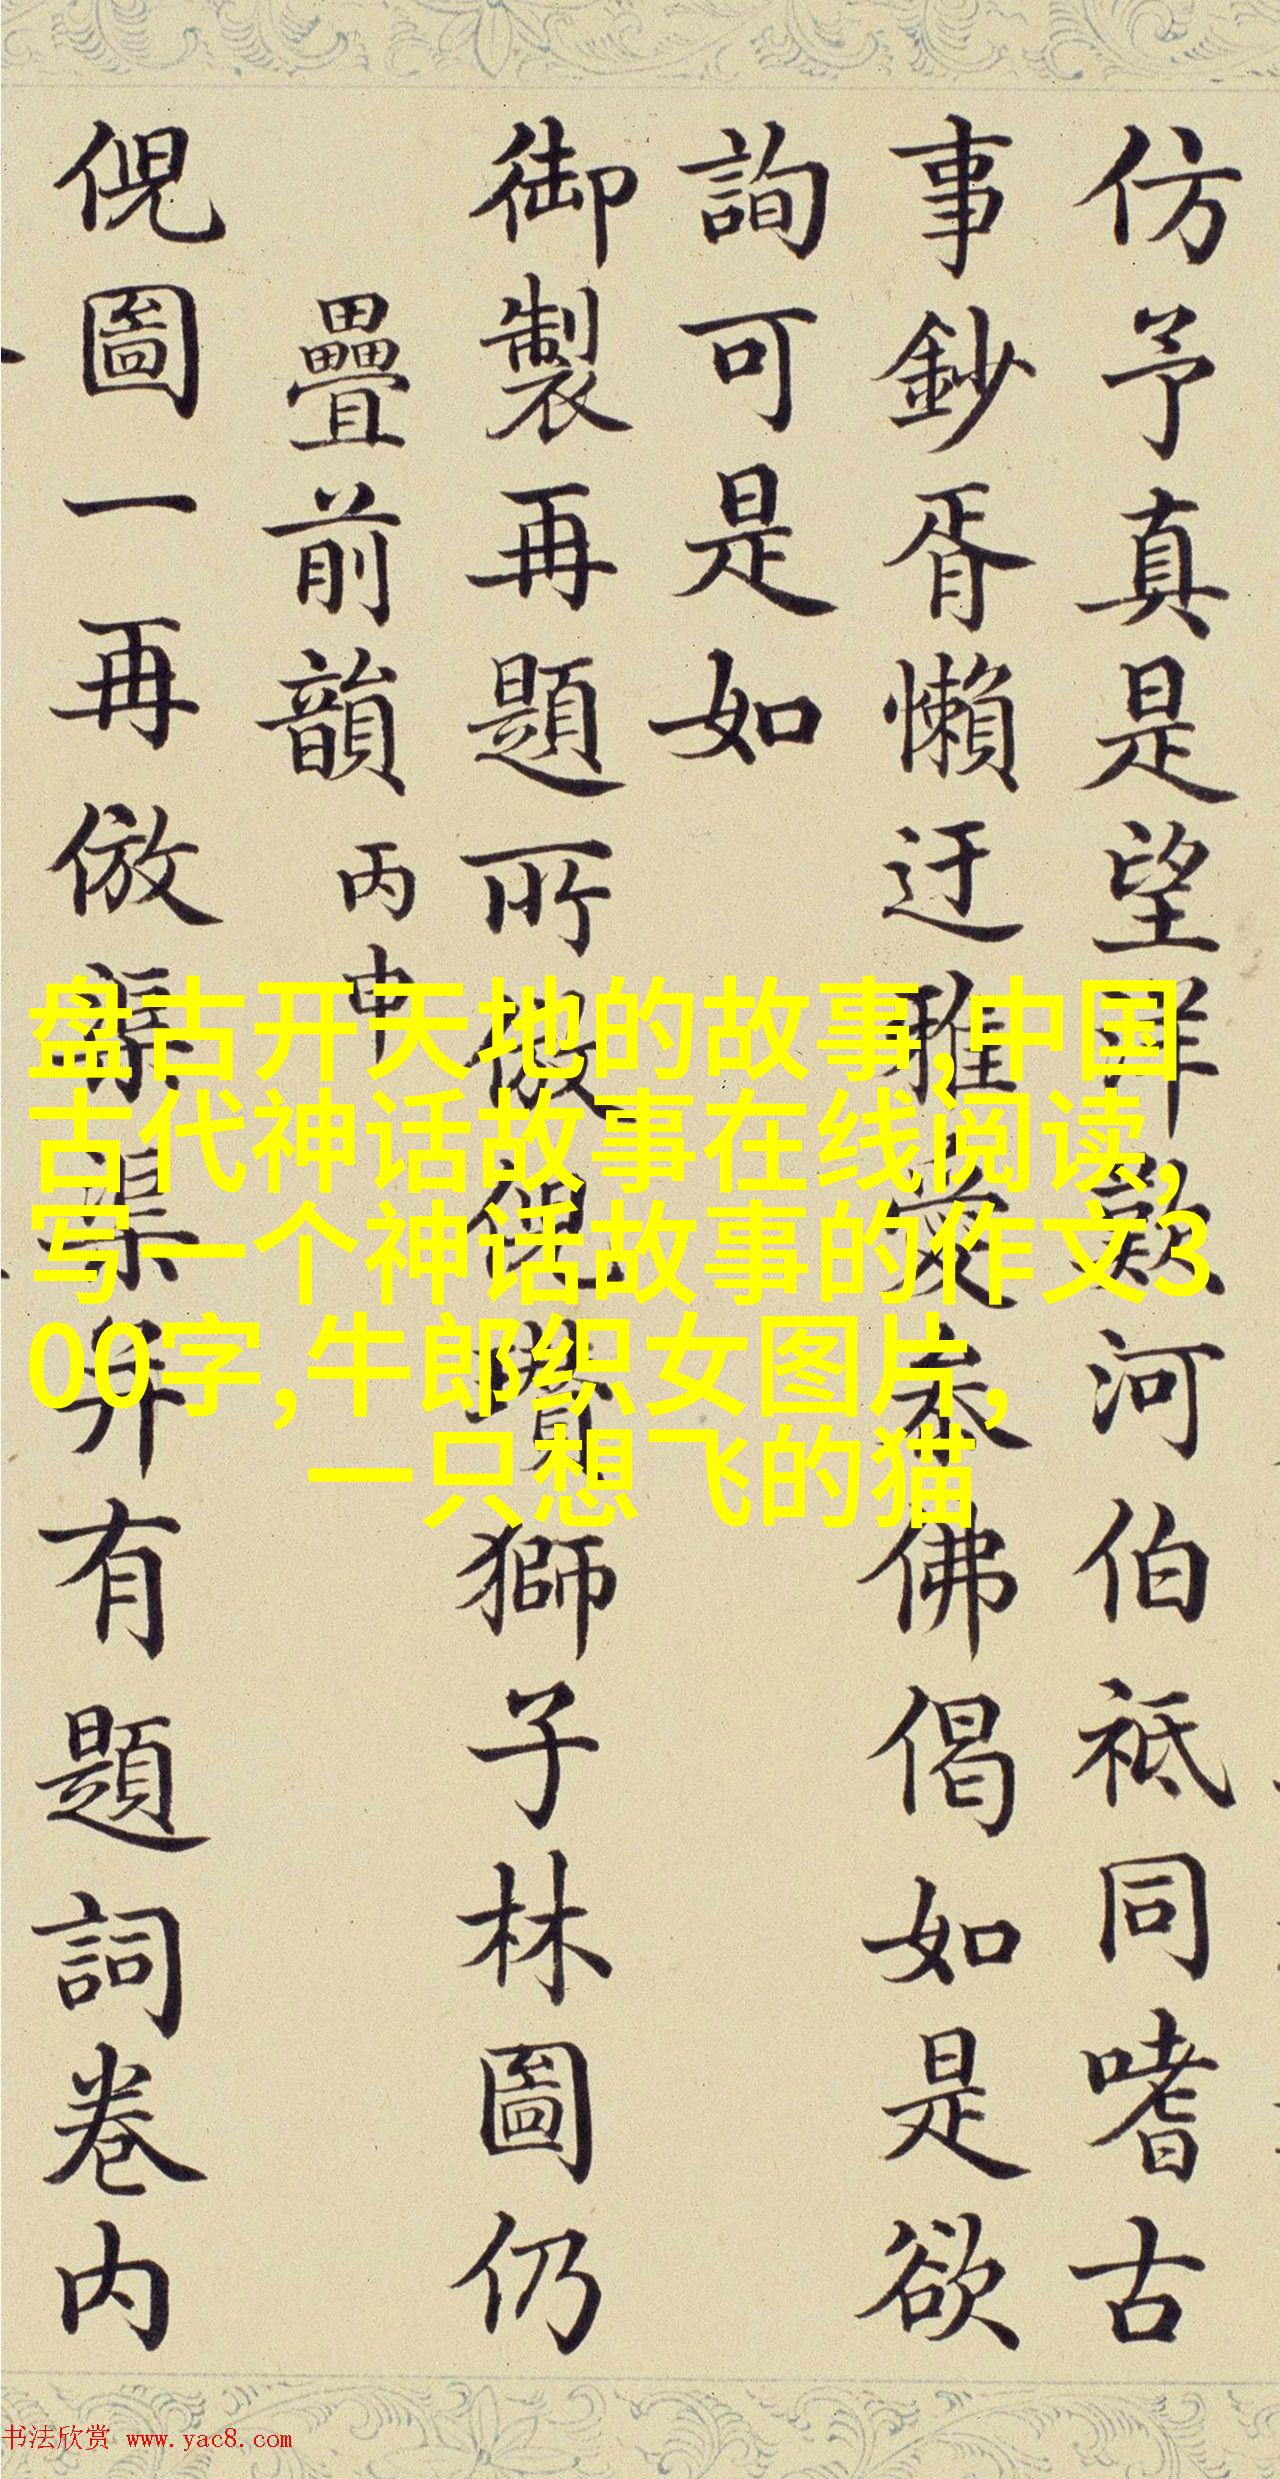 仿予真是望洋歎河伯祗同嗜古
事鈔胥懶迂雅愛參佛偈如是欲
詢可是如
御製再題所倣倪瓚獅子林圖仍
疊前韻 丙申
倪圖一再倣渠渠有題詞卷内
盘古开天地的故事,中国
古代神话故事在线阅读,
写一个神话故事的作文3
00字,牛郎织女图片,
一只想飞的猫
书法欣赏 www.yac8.com